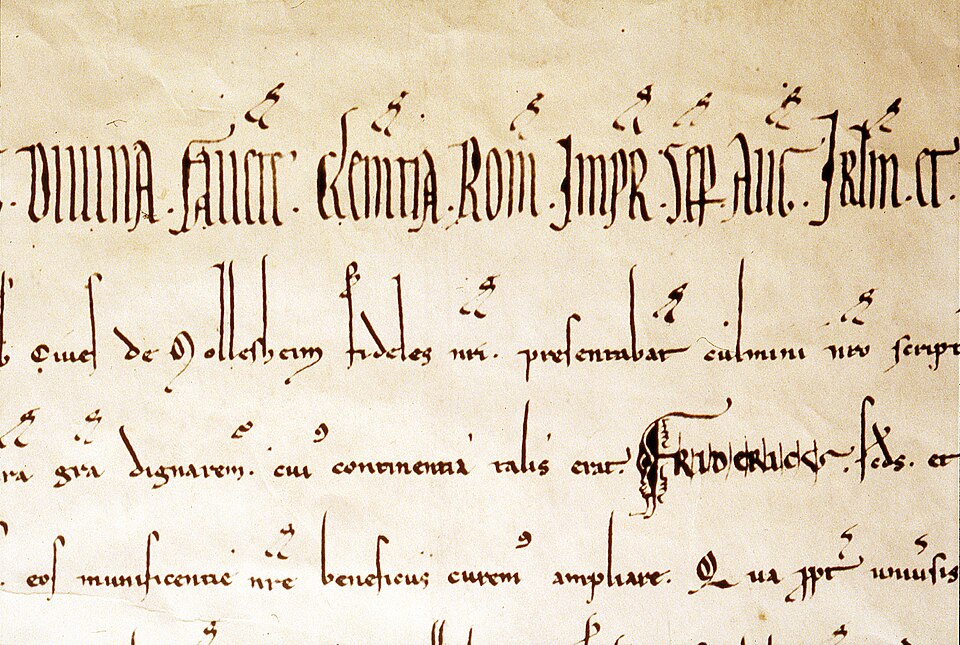 DIVINA . FAVETE . CLEMTIA . ROM . IMPR . SEP . AUG . IRLM . ET .
Cives de Mollesheim fideles nri . presentabat culmini nro script
ra gra dignarem . cui continentia talis erat . FRIDERICUS . scds . et
. eos munificentie nre beneficiis curem ampliare . Qua ppt univsis